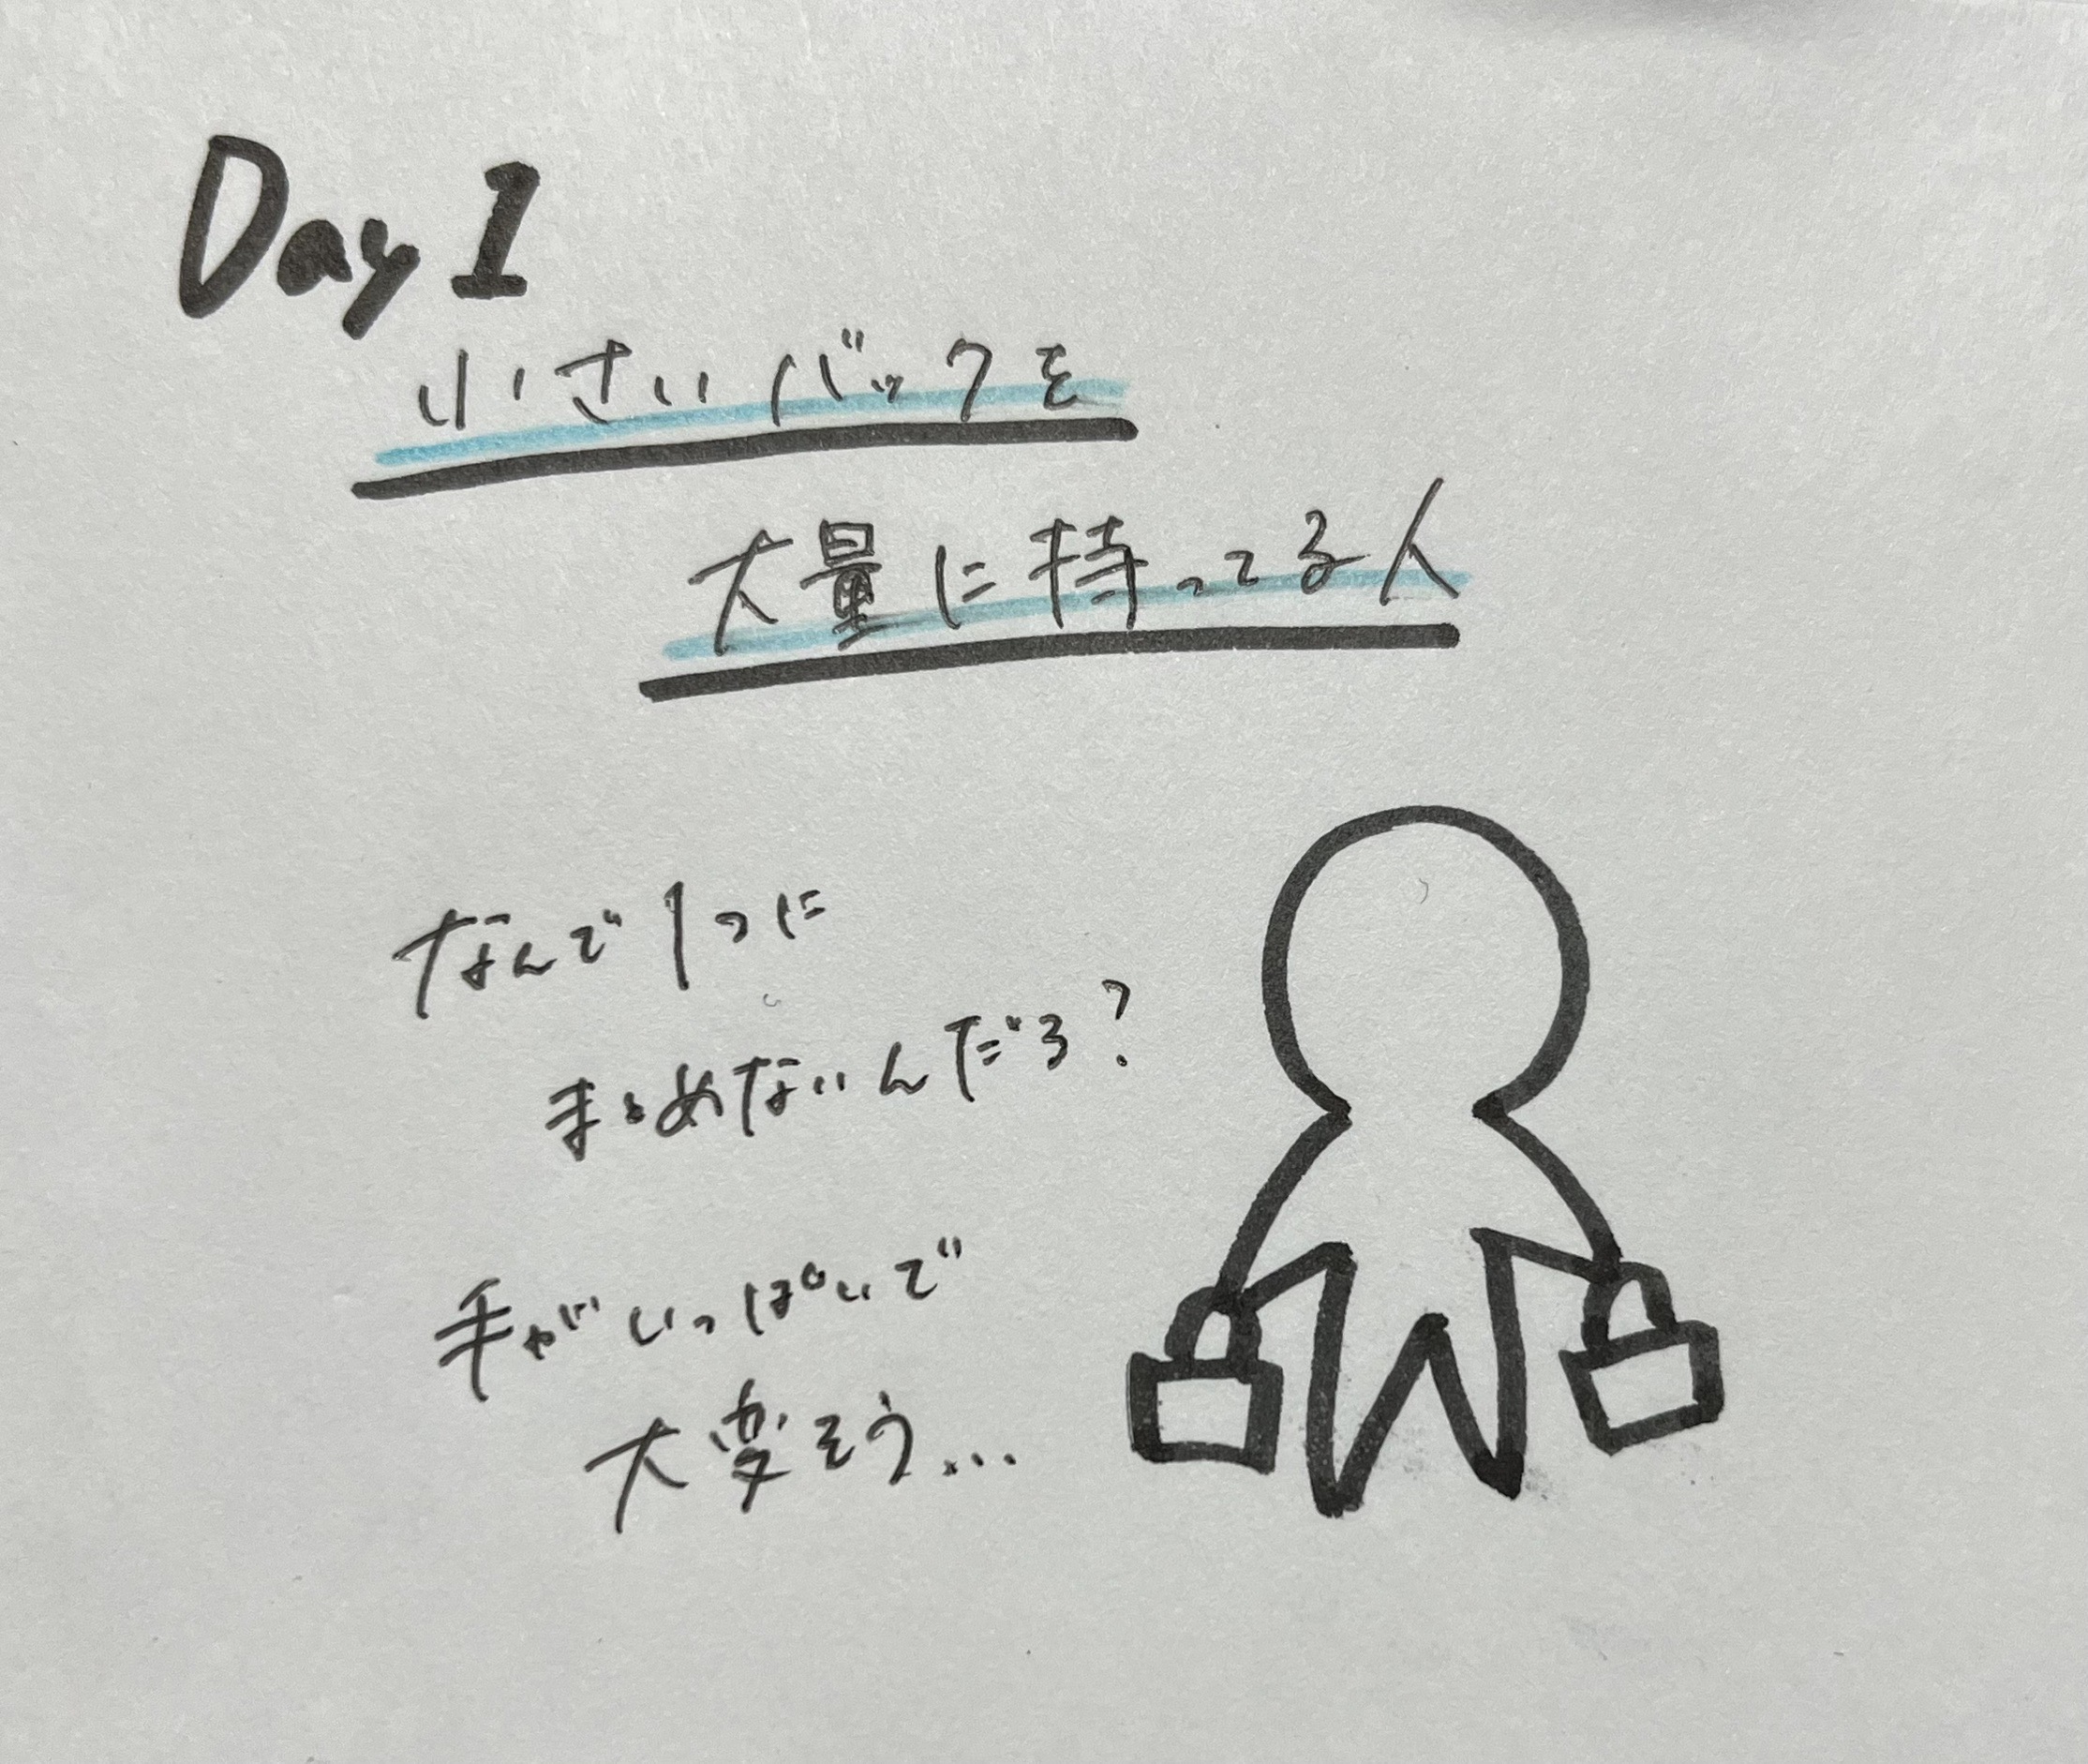 Day 1
小さいバックを
大量に持ってる人
なんで1つに
まとめないんだろ?
手がいっぱいで
大変そう...